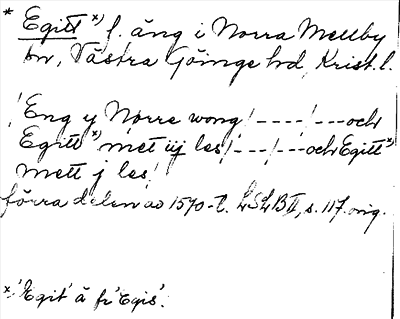 * Egitt *) f. äng i Norra Mellby
sn, Västra Göinge hd, Krist. l.
! Eng y Norre wong! ----! --- och
Egitt *) mett iij les! ---! --- och Egitt *)
mett j les!
förra delen av 1570-t. LSLB II, s. 117. orig.
*) 'Egit' ä fr 'Egis'.